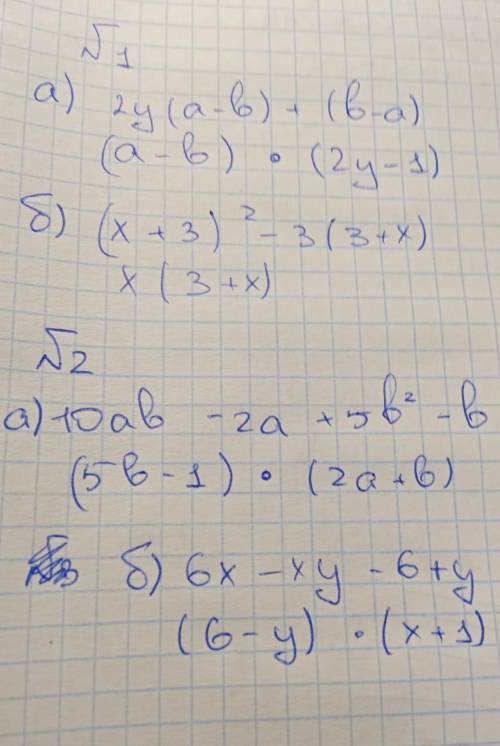 √1
а) 2y(a-b) + (b-a)
(a-b) • (2y-1)
б) (x+3)² - 3(3+x)
x(3+x)
√2
а) 10ab - 2a + 5b² - b
(5b-1) • (2a+b)
б) 6x - xy - 6 + y
(6-y) • (x+1)